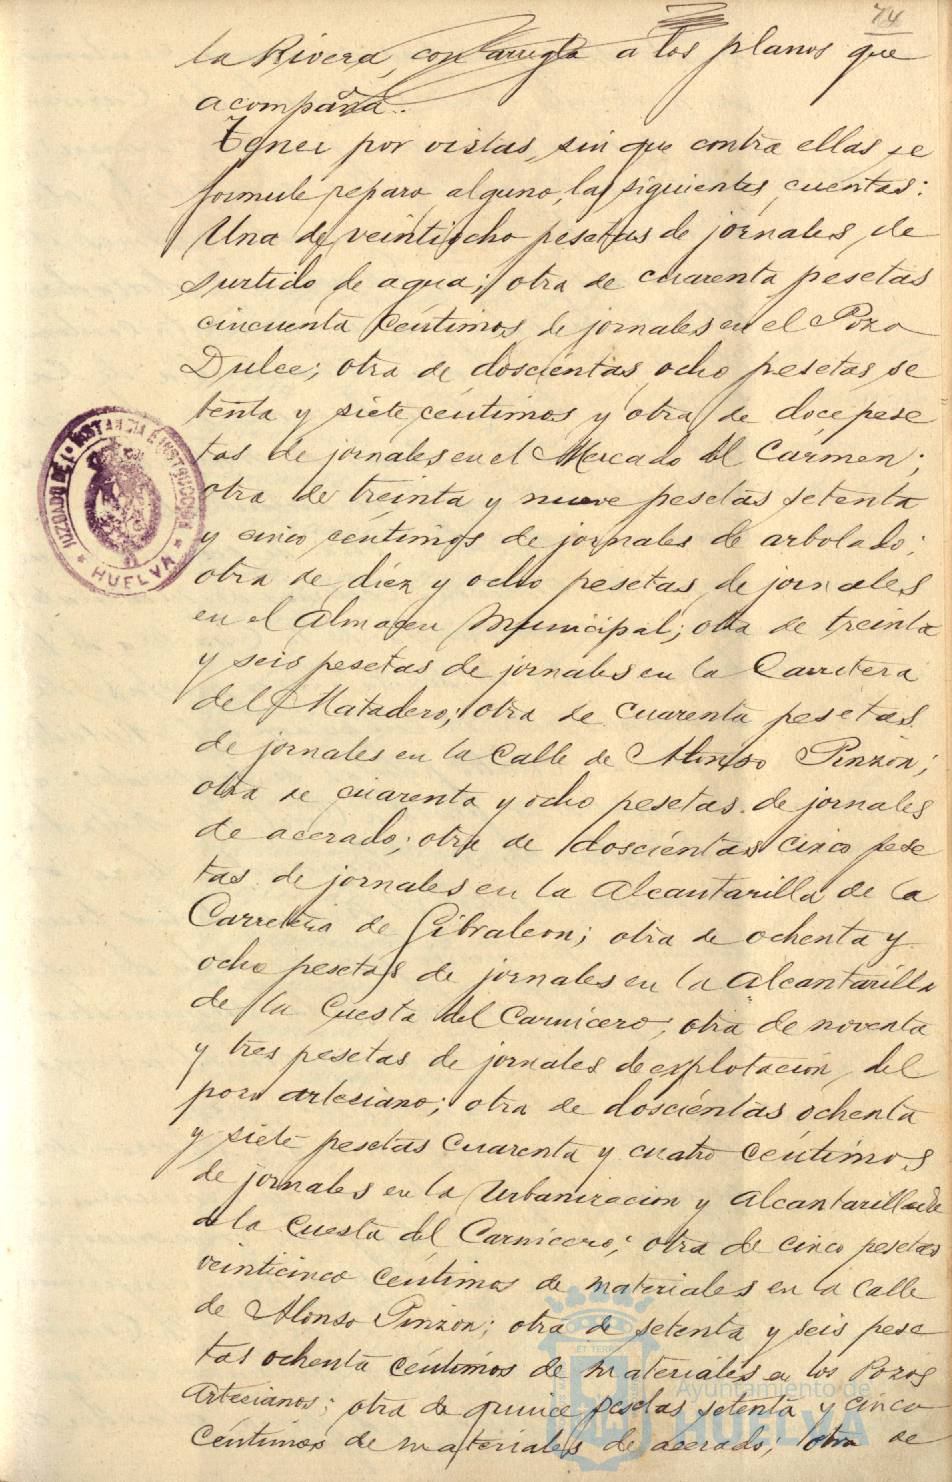 74
la Rivera, con arreglo a los planos que
acompaña.
Tener por vistas, sin que contra ellas se
formule reparo alguno, las siguientes cuentas:
Una de veintiocho pesetas de jornales de
surtido de agua; otra de cuarenta pesetas
cincuenta céntimos de jornales en el Pozo
Dulce; otra de doscientas ocho pesetas se
tenta y siete céntimos y otra de doce pese
tas de jornales en el Mercado del Carmen;
otra de treinta y nueve pesetas setenta
y cinco céntimos de jornales de arbolado;
otra de diez y ocho pesetas de jornales
en el Almacen Municipal; otra de treinta
y seis pesetas de jornales en la Carretera
del Matadero; otra de cuarenta pesetas
de jornales en la Calle de Alonso Pinzón;
otra de cuarenta y ocho pesetas de jornales
de acerado; otra de doscientas cinco pese
tas de jornales en la Alcantarilla de la
Carretera de Gibraleon; otra de ochenta y
ocho pesetas de jornales en la Alcantarilla
de la Cuesta del Carnicero; otra de noventa
y tres pesetas de jornales de explotación del
pozo artesiano; otra de doscientas ochenta
y siete pesetas cuarenta y cuatro céntimos
de jornales en la Urbanizacion y Alcantarillado
de la Cuesta del Carnicero; otra de cinco pesetas
veinticinco céntimos de materiales en la calle
de Alonso Pinzón; otra de setenta y seis pese
tas ochenta céntimos de materiales en los Pozos
Artesianos; otra de quince pesetas setenta y cinco
céntimos de materiales de acerado; otra de
JUZGADO DE 1ª INSTANCIA E INSTRUCCION
HUELVA
Ayuntamiento de
HUELVA